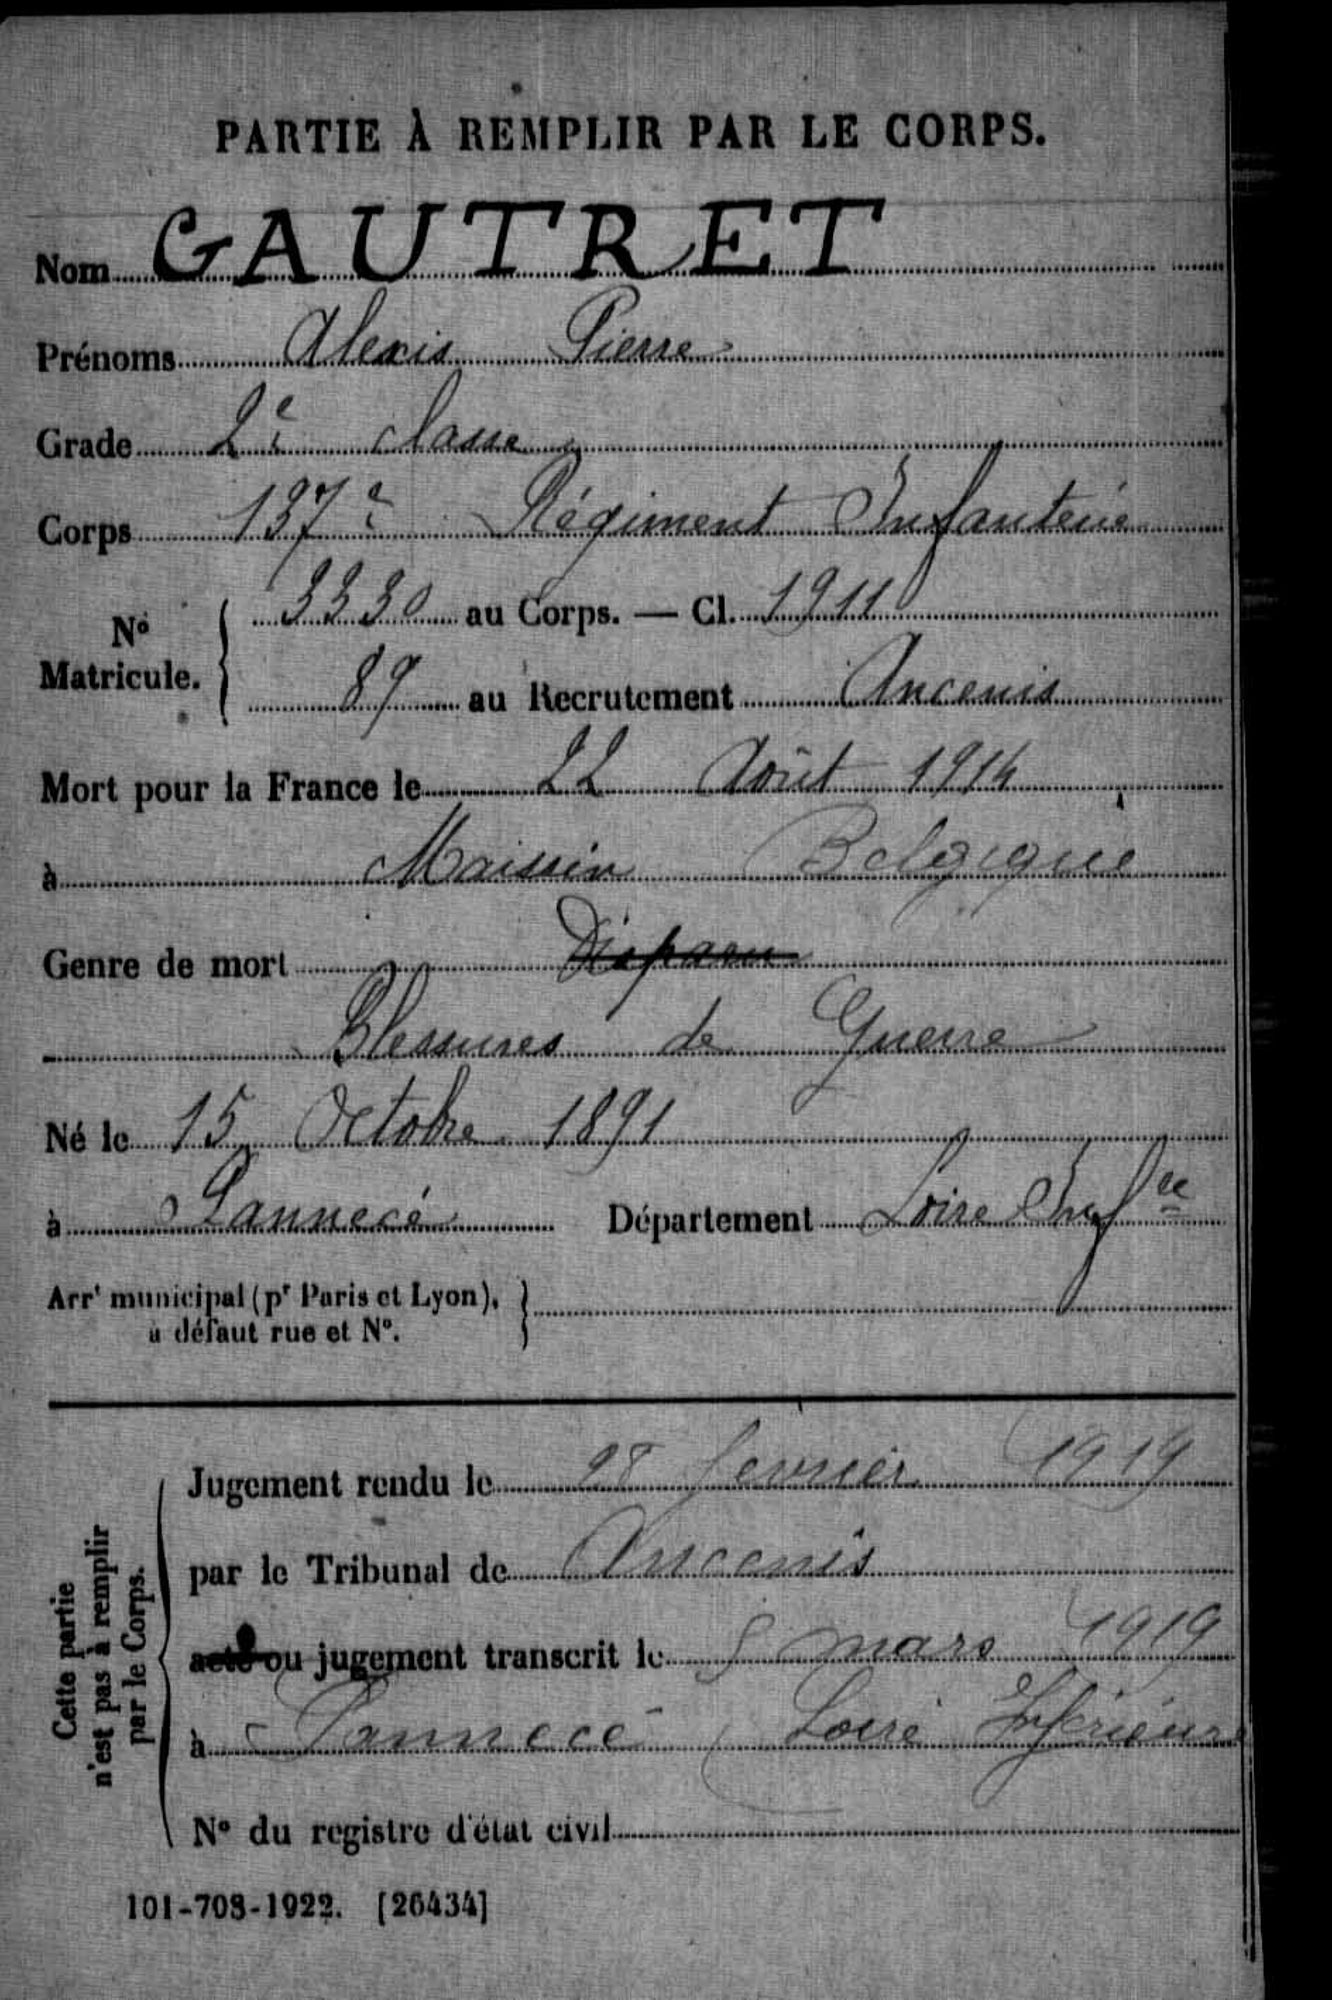 PARTIE À REMPLIR PAR LE CORPS.
Nom GAUTRET
Prénoms Alexis Pierre
Grade 2e classe
Corps 137e Régiment Infanterie
No Matricule. 3330 au Corps. — Cl. 1911
89 au Recrutement Ancenis
Mort pour la France le 22 Août 1914
à Maissin Belgique
Genre de mort Disparu
Blessures de Guerre
Né le 15 Octobre 1891
à Pannecé Département Loire Infre
Arrt municipal (pr Paris et Lyon),
à défaut rue et No.
Cette partie
n'est pas à remplir
par le Corps.
Jugement rendu le 28 fevrier 1919
par le Tribunal de Ancenis
acte ou jugement transcrit le mars 1919
à Pannecé Loire Inférieure
No du registre d'état civil
101-708-1922. [26434]